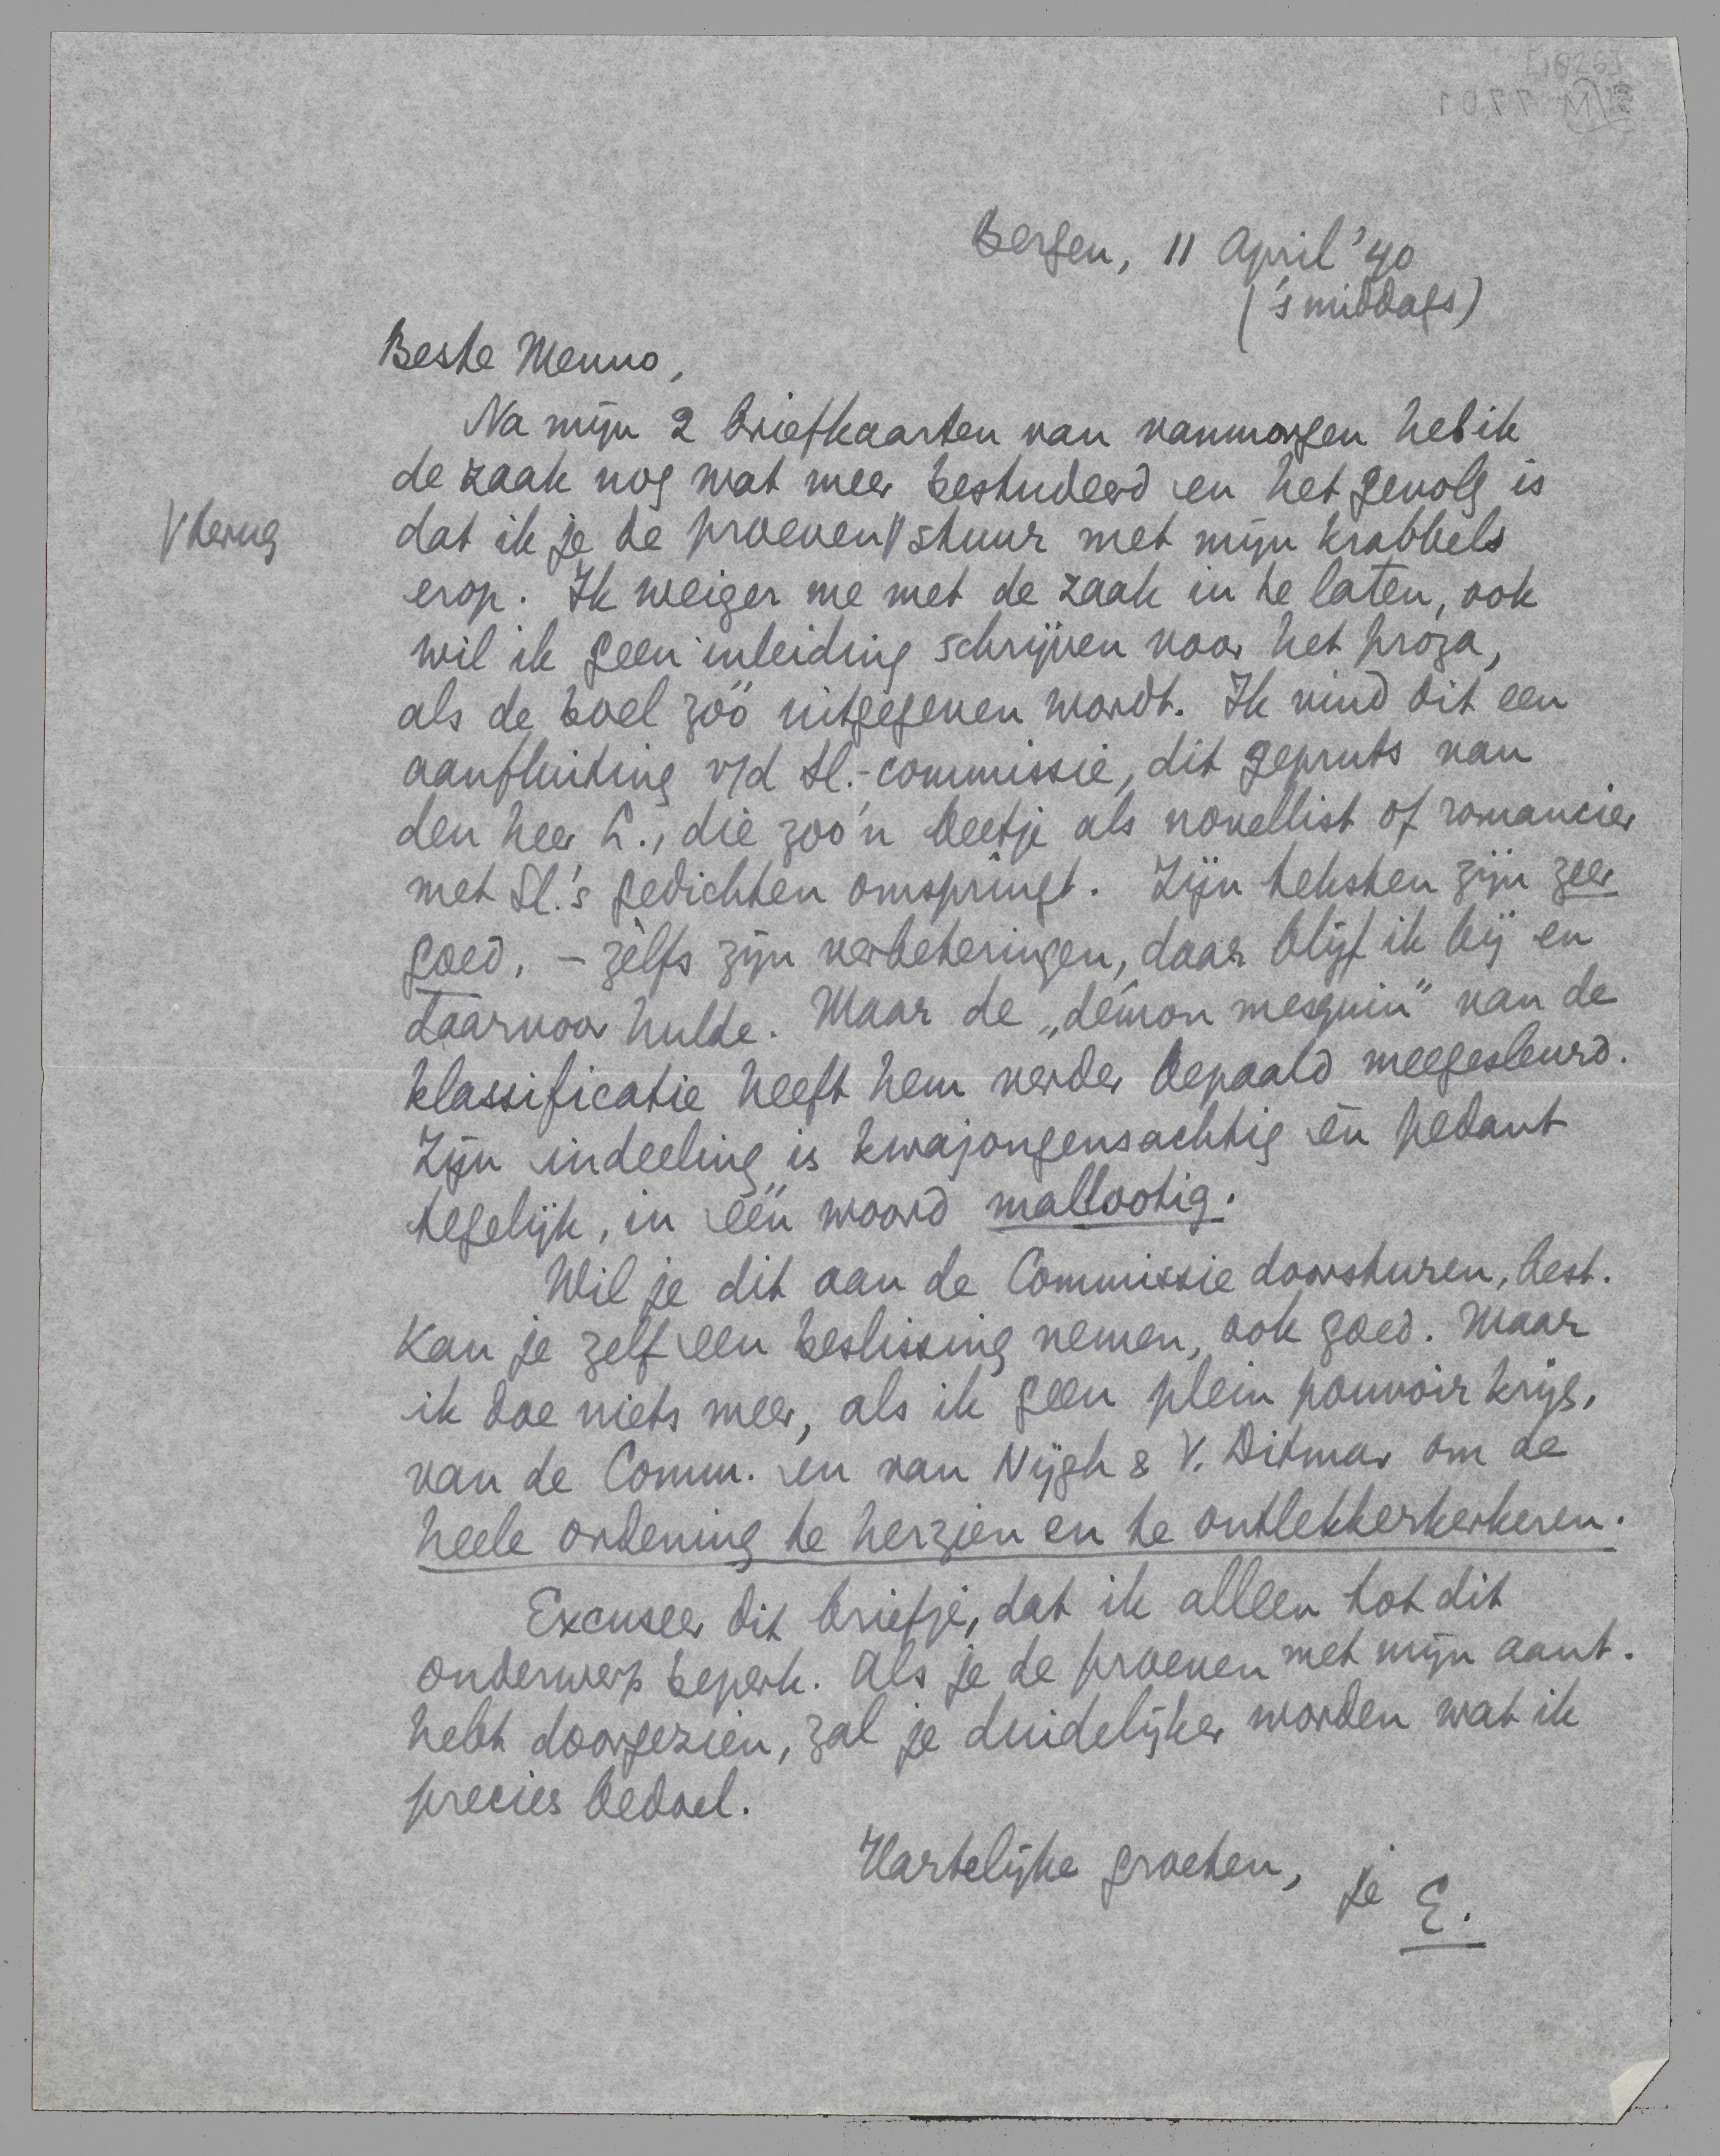 Bergen, 11 April '40
('s middags)
Beste Menno,
Na mijn 2 briefkaarten van vanmorgen heb ik
de zaak nog wat meer bestudeerd en het gevolg is
√ terug
dat ik je de proeven √ stuur met mijn krabbels
erop. Ik weiger me met de zaak in te laten, ook
wil ik geen inleiding schrijven voor het proza,
als de boel zóó uitgegeven wordt. Ik vind dit een
aanfluiting v/d Sl.-commissie, dit gepruts van
den heer L., die zoo'n beetje als novellist of romancier
met Sl.'s gedichten omspringt. Zijn teksten zijn zeer
goed, – zèlfs zijn verbeteringen, daar blijf ik bij en
daarvoor hulde. Maar de „démon mesquin" van de
klassificatie heeft hem verder bepaald meegesleurd.
Zijn indeeling is kwajongensachtig èn pedant
tegelijk, in één woord mallootig.
Wil je dit aan de Commissie doorsturen, best.
Kan je zelf een beslissing nemen, ook goed. Maar
ik doe niets meer, als ik geen plein pouvoir krijg,
van de Comm. en van Nijgh & V. Ditmar om de
heele ordening te herzien en te ontlekkerkerkeren.
Excuseer dit briefje, dat ik alleen tot dit
onderwerp beperk. Als je de proeven met mijn aant.
hebt doorgezien, zal je duidelijker worden wat ik
precies bedoel.
Hartelijke groeten, je E.